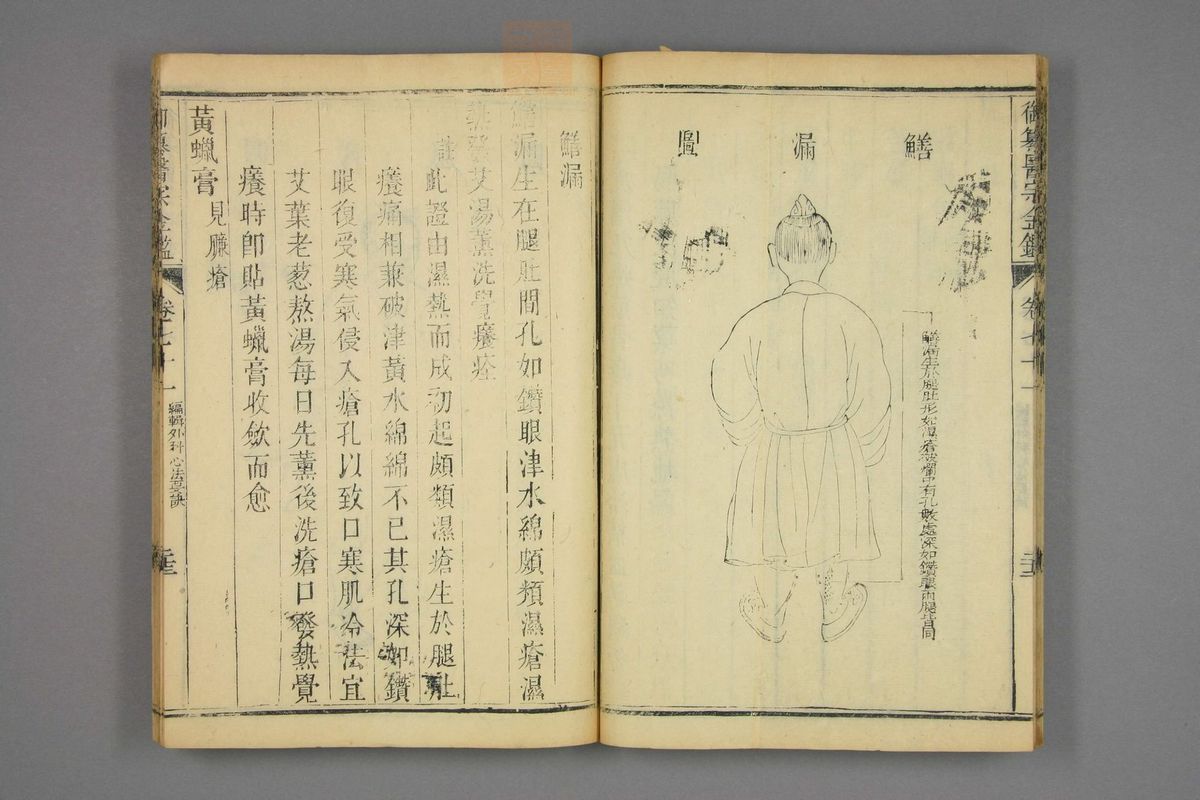 御纂醫宗金鑑 卷七十一
鱔漏圖
鱔漏生於腿肚形如濕瘡破爛中有孔數處深如鑽眼兩腿皆同
鱔漏
鱔漏生在腿肚間孔如鑽眼津水綿頗類濕瘡濕
熱發艾湯薰洗覺癢痊
註此證由濕熱而成初起頗類濕瘡生於腿肚
癢痛相兼破津黃水綿綿不已其孔深如鑽
眼復受寒氣侵入瘡孔以致口寒肌冷法宜
艾葉老葱熬湯每日先薰後洗瘡口發熱覺
癢時即貼黃蠟膏收斂而愈
黃蠟膏 見臁瘡
御纂醫宗金鑑 卷七十一 編輯外科心法要訣